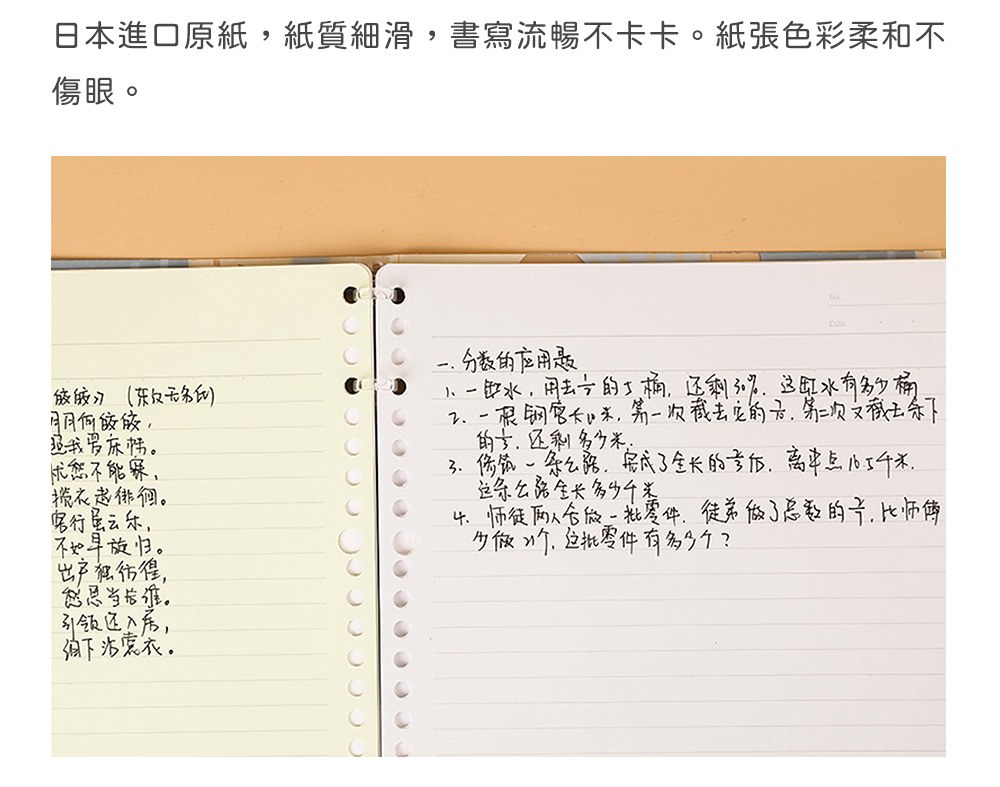 日本進口原紙，紙質細滑，書寫流暢不卡卡。紙張色彩柔和不
傷眼。
No.
Date
皎皎》(东汉无名氏)
明月何皎皎，
照我罗床帏。
忧愁不能寐，
揽衣起徘徊。
客行虽云乐，
不如早旋归。
出户独彷徨，
愁思当告谁。
引领还入房，
泪下沾裳衣。
一. 分数的应用题
1. 一缸水，用去 的5桶，还剩30%，这缸水有多少桶
2. 一根钢管长10米，第一次截去它的 ，第二次又截去余下
的 ，还剩多少米.
3. 修筑一条公路，完成了全长的 后，离中点16.5千米.
这条公路全长多少千米
4. 师徒两人合做一批零件. 徒弟做了总数的 ，比师傅
少做21个，这批零件有多少个？